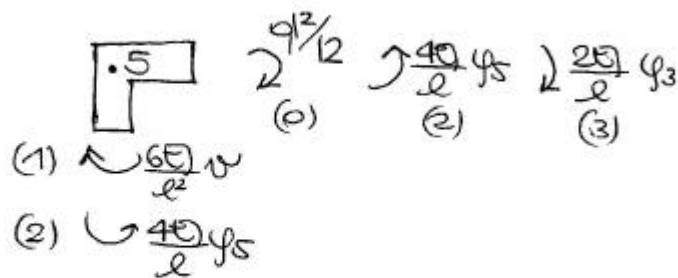 5 ql²/12 4EJ/l φ5 2EJ/l φ3
(0) (2) (3)
(1) 6EJ/l² v
(2) 4EJ/l φ5